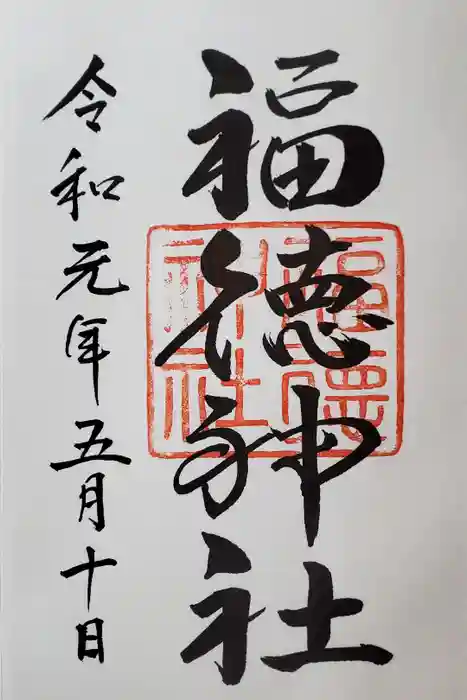 福徳神社
令和元年五月十日
福徳神社